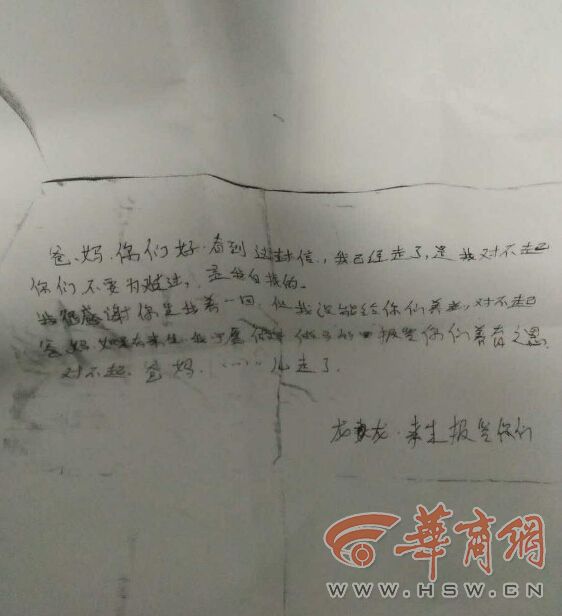 爸、妈、你们好.看到这封信,我已经走了,是我对不起
你们不要为难过,是我自找的。
我很感谢你 我养一回,但我没能给你们养老,对不起
爸妈 如果有来生 我 报答你们养育之恩.
对不起.爸妈.……儿走了.
龙 龙.来生报答你们
華商網
WWW.HSW.CN